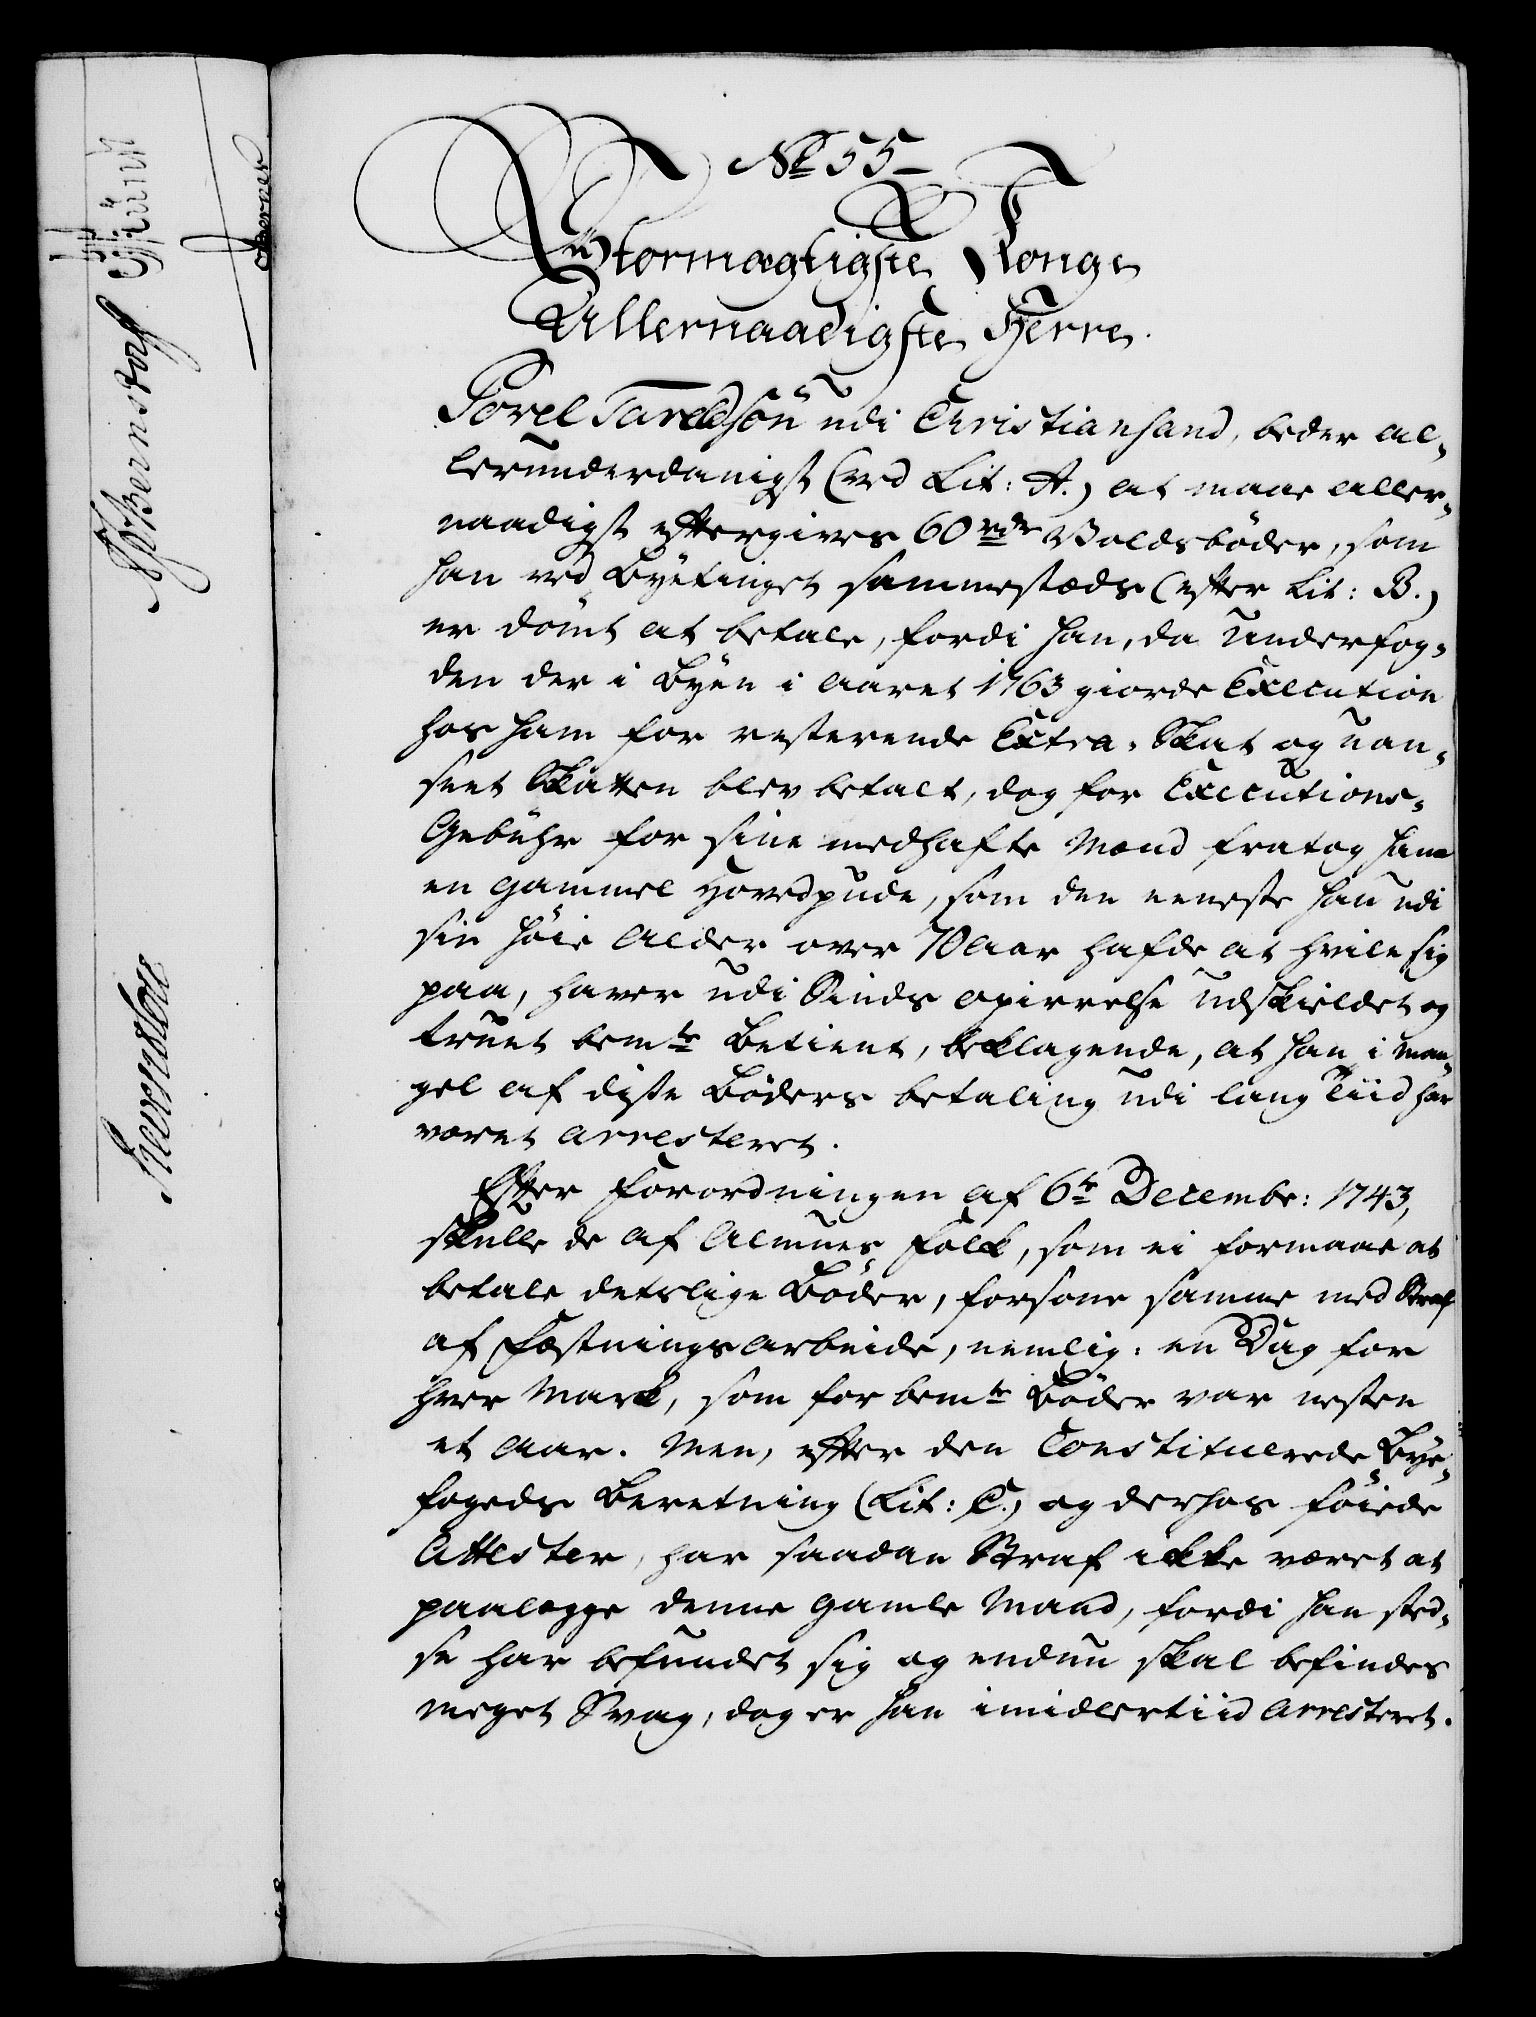 No 55
Stormægtigste Konge
Allernaadigste Herre.
Povel Tareldsön udi Christiansand, beder al-
lerunderdanigst (ved Lit: A.) at maae aller-
naadigst eftergives 60 rdr Voldsböder, som
han ved Byetinget sammestæds (efter Lit: B.)
er dömt at betale, fordi han, da Underfog-
den der i Byen i Aaret 1763 giorde Execution
hos ham for resterende Extra-Skat og uan-
seet Skatten blev betalt, dog for Executions-
Gebühr for sine medhafte Mænd fratog ham
en gammel Hovedpude, som den eeneste han udi
sin höie Alder over 70 Aar hafde at hvile sig
paa, haver udi Sinds Opirrelse udskieldet og
truet bemte Betient, beklagende, at han i Man-
gel af disse Böders Betaling udi lang Tiid har
været arresteret.
Efter Forordningen af 6te Decembr: 1743,
skulle de af Almues Folk, som ei formaae at
betale deslige Böder, forsone samme med Straf
af Fæstnings Arbeide, nemlig: en Dag for
hver Mark, som for bemte Böder var nesten
et Aar. Men, efter den Constituerede Bye-
fogeds Beretning (Lit: C.) og derhos föiede
Attester, har saadan Straf ikke været at
paalegge denne gamle Mand, fordi han sted-
se har befundet sig og endnu skal befindes
meget Svag, dog er han imidlertiid arresteret.
AGBernstorff